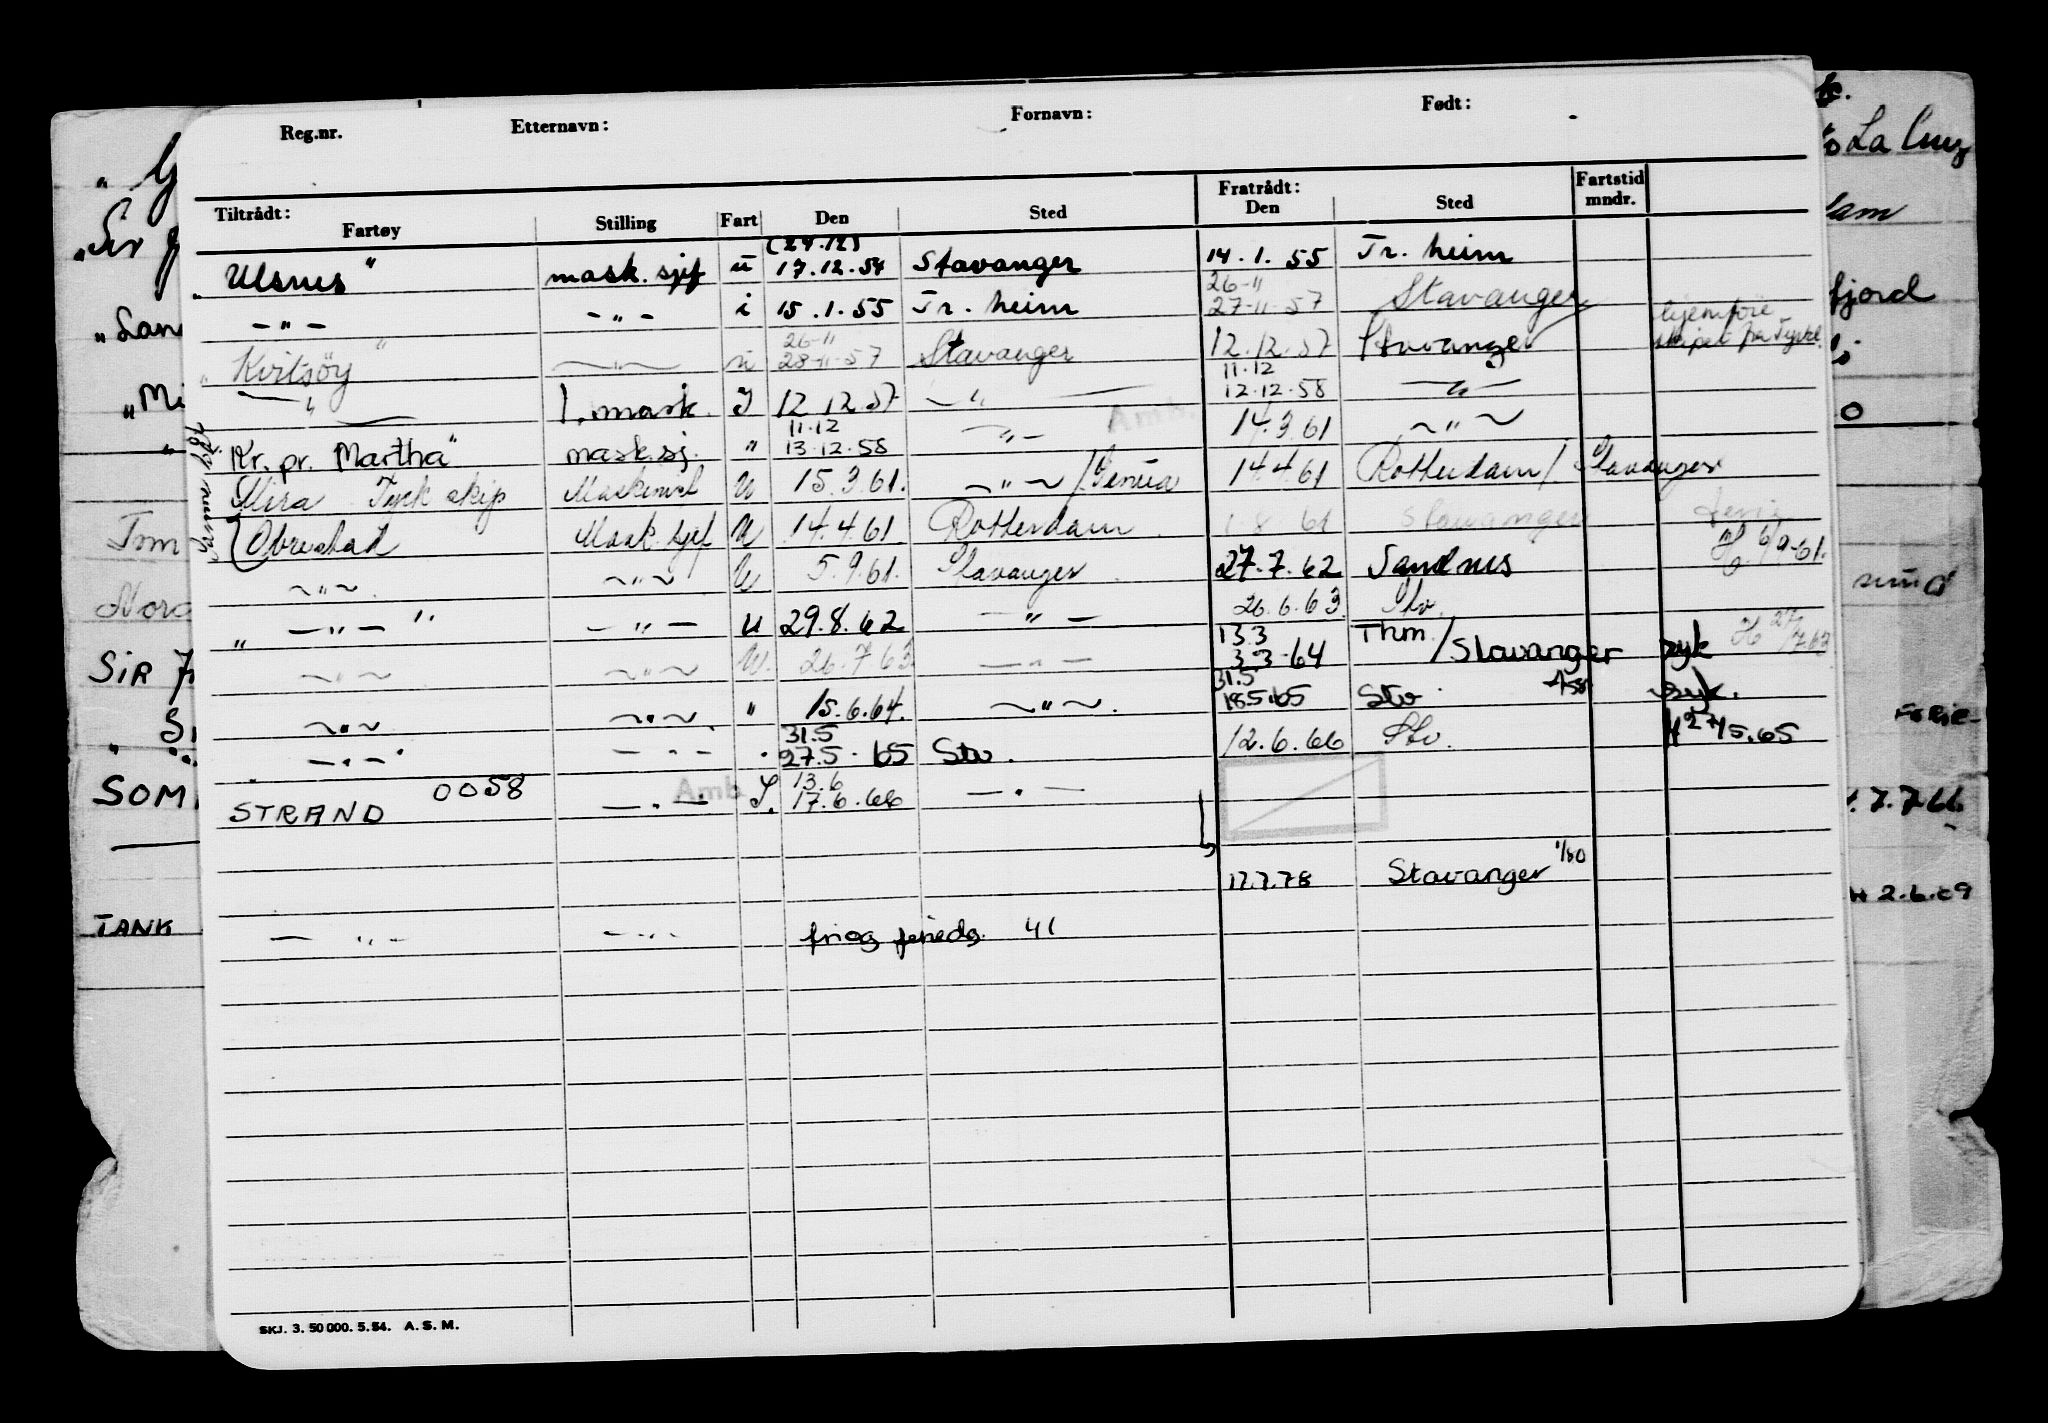 Reg.nr. Etternavn: Fornavn: Født:
Tiltrådt: Fratrådt: Fartstid
Fartøy Stilling Fart Den Sted Den Sted mndr.
(29.12)
Ulsnes" mask. sjef u 17.12.54 Stavanger 14.1.55 Tr. heim
26-11
— " — — " — i 15.1.55 Tr. heim 27-11-57 Stavanger hjemføre
26-11
" Kvitsøy " — " — u 28-11-57 Stavanger 12.12.57 Stavanger skipet fra
11.12
— " — 1. mask. I 12.12.57 — " — 12.12.58 — " —
11.12
Kr. pr. Martha" mask.sj. " 13.12.58 — " — 14.3.61 ~ " ~
Mira Tysk skip Maskinist U 15.3.61. ~ " ~ / Genua 14.4.61 Rotterdam / Stavanger
Obrestad Mask. sjef U 14.4.61 Rotterdam 1.8.61 Stavanger ferie
~ " ~ ~ " ~ U 5.9.61. Stavanger 27.7.62 Sandnes H 6/9-61.
" — " — " — " — u 29.8.62 — " — 26.6.63. Stv.
13.3 Thm.
~ " ~ ~ " ~ U. 26.7.63 — " — 3.3.64 / Stavanger syk H 27/7.63
31.5
~ " ~ ~ " ~ " 15.6.64. ~ " ~ 18.5.65 Stv. syk.
31.5
— " — — " — " 27.5.65 Stv. 12.6.66 Stv. H 27/5.65
13.6
STRAND 0058 — " — I. 17.6.66 — " —
Amb.
Amb
17.7.78 Stavanger 1/80
— " — — " — 41
SKJ. 3. 50 000. 5. 54. A. S. M.
La Cruz
fjord
SIR
SOM
7.7.66
TANK
H 2.6.69
FERIE-